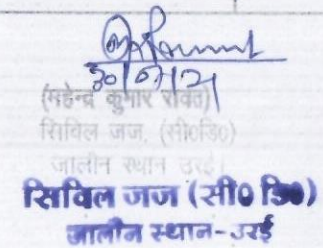 30/07/21
(महेन्द्र कुमार रावत)
सिविल जज, (सी०डि०)
जालौन स्थान उरई
सिविल जज (सी० डि०)
जालौन स्थान-उरई